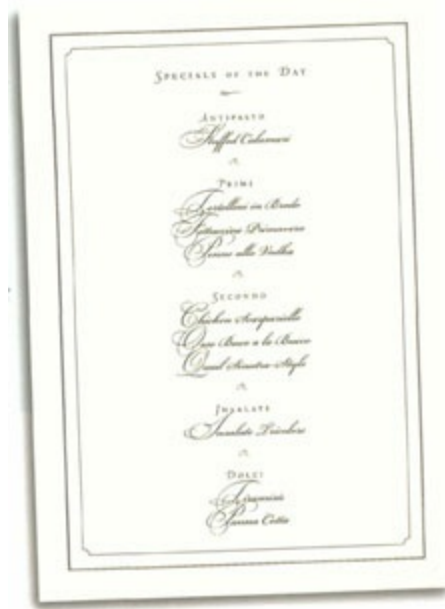 Specials of the Day
Antipasto
Stuffed Calamari
Primi
Tortellini in Brodo
Fettuccine Primavera
Penne alla Vodka
Secondo
Chicken Scarpariello
Osso Buco a la Bacco
Quail Sinatra-Style
Insalate
Insalate Tricolore
Dolci
Tiramisu
Panna Cotta